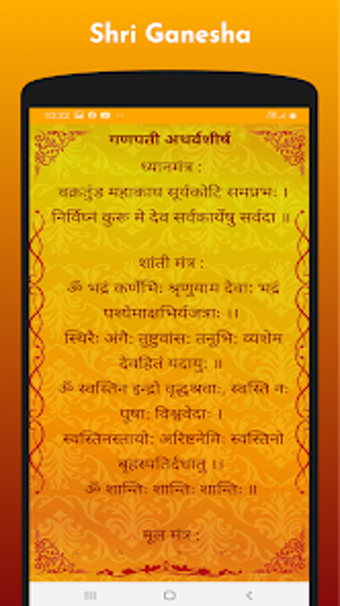 Shri Ganesha
10:22
गणपती अथर्वशीर्ष
ध्यानमंत्र :
वक्रतुंड महाकाय सूर्यकोटि समप्रभः ।
निर्विघ्नं कुरू मे देव सर्वकार्येषु सर्वदा ॥
शांती मंत्र :
ॐ भद्रं कर्णेभिः श्रृणुयाम देवाः भद्रं
पश्येमाक्षभिर्यजत्राः ।।
स्थिरैः अंगैः तुष्टुवांसः तनूभिः व्यशेम
देवहितं यदायुः ॥
ॐ स्वस्तिन इन्द्रो वृद्धश्रवाः, स्वस्ति नः
पूषाः विश्ववेदाः ।
स्वस्तिनस्तार्यो: अरिष्टनेमिः स्वस्तिनो
बृहस्पतिर्दधातु ।।
ॐ शान्तिः शान्तिः शान्तिः ॥
मूल मंत्र :